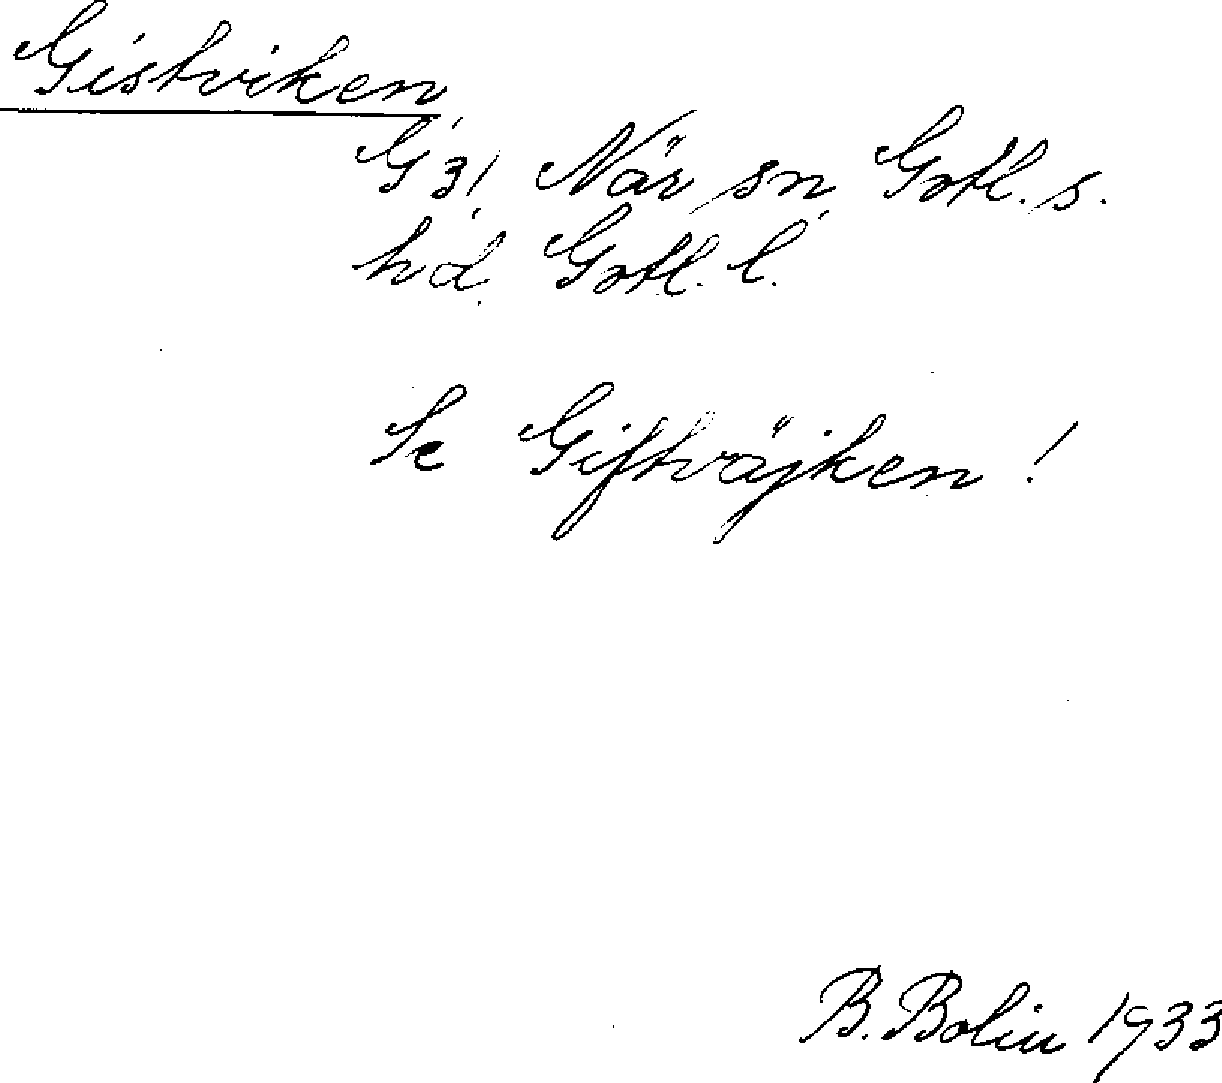 Gistviken
G 31 När sn Gotl. s.
hd. Gotl. l.
Se Giftväjken!
B. Bolin 1933